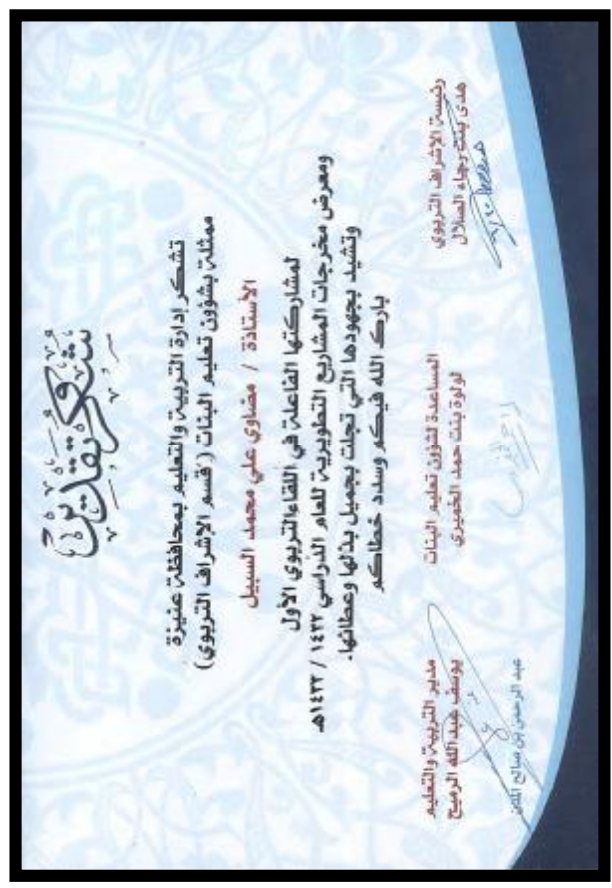 شكر وتقدير
تشكر إدارة التربية والتعليم بمحافظة عنيزة
ممثلة بشؤون تعليم البنات ( قسم الإشراف التربوي)
الأستاذة / مضاوي علي محمد السبيل
لمشاركتها الفاعلة في اللقاءالتربوي الأول
ومعرض مخرجات المشاريع التطويرية للعام الدراسي ١٤٣٢ / ١٤٣٣هـ
وتشيد بجهودها التي تجلت بجميل بذلها وعطائها.
بارك الله فيكم وسدد خطاكم
رئيسة الإشراف التربوي
هدى بنت رجاء السلال
المساعدة لشؤون تعليم البنات
لولوة بنت حمد الخميري
مدير التربية والتعليم
يوسف عبدالله الرميح
عبد الرحمن بن صالح